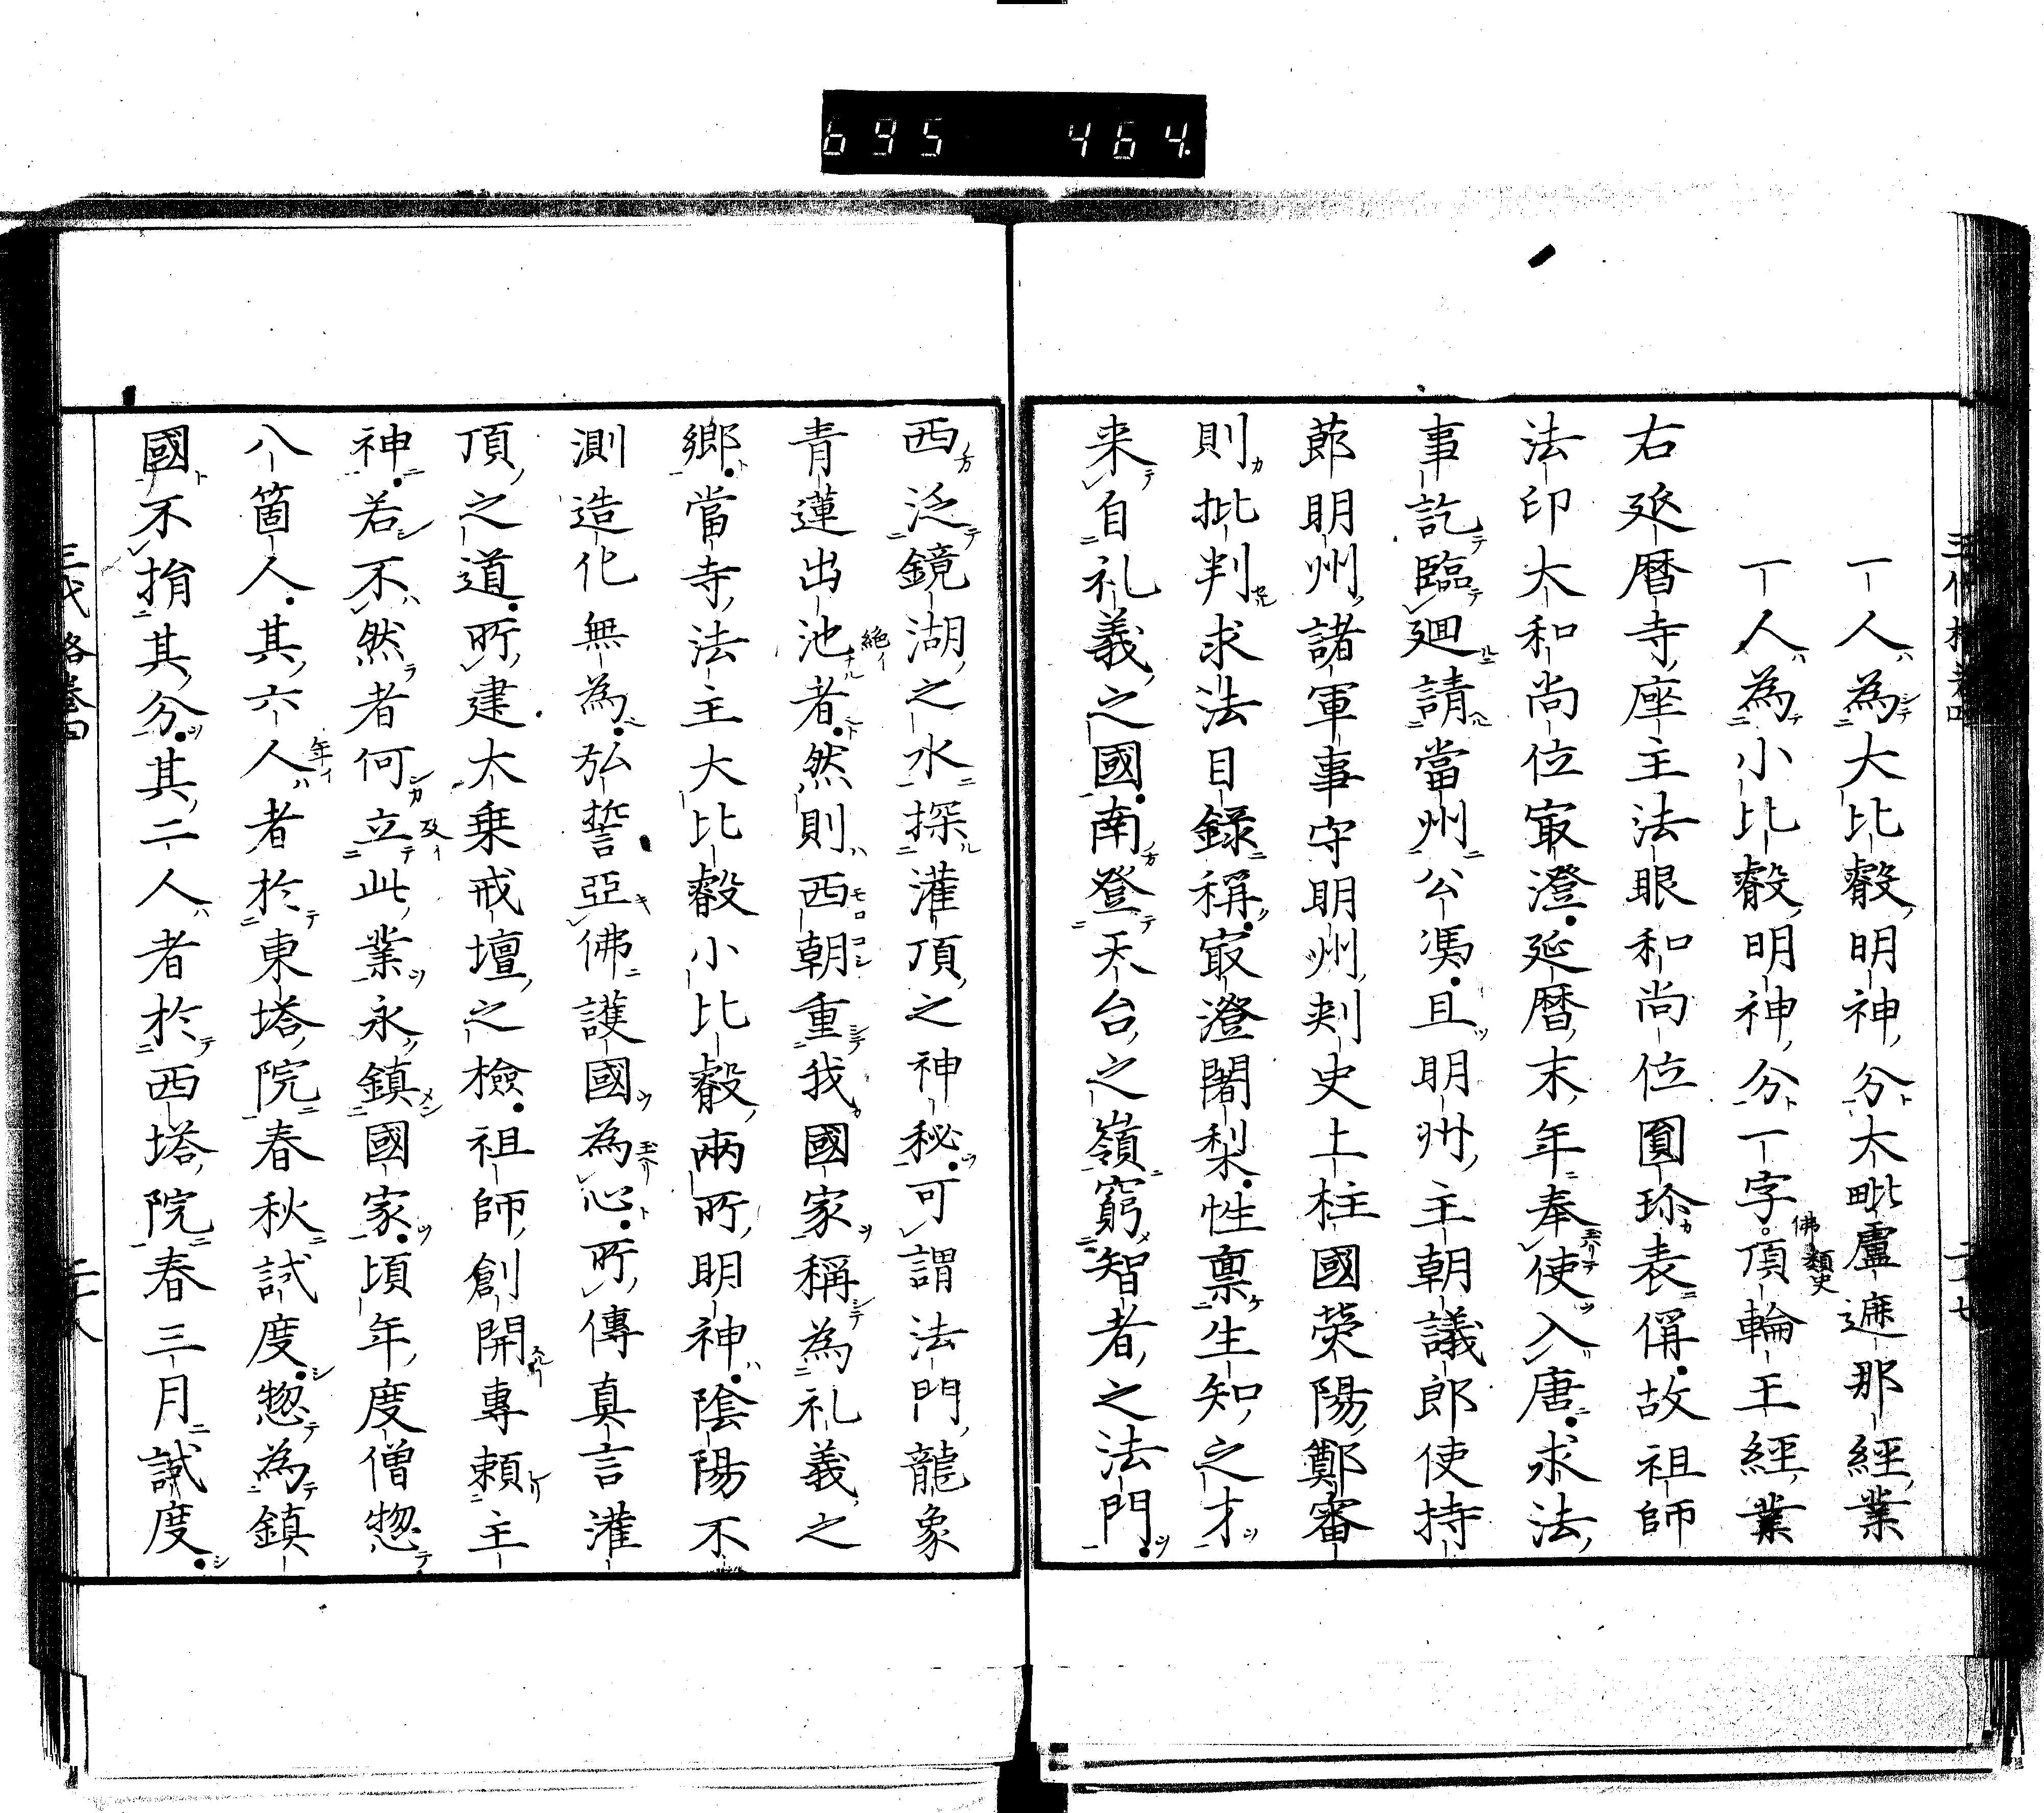 695 464
一人為大比叡明神分大毗盧遮那經業
一人為小比叡明神分一字頂輪王經業
佛類史
右延曆寺座主法眼和尚位圓珍表偁故祖師
法印大和尚位㝡澄延曆末年奉使入唐求法
事訖臨廻請當州公馮且明州主朝議郎使持
莭明州諸軍事守明州刺史上柱國滎陽鄭審
則批判求法目錄稱㝡澄闍梨性禀生知之才
来自礼義之國南登天台之嶺窮智者之法門
西泛鏡湖之水探灌頂之神秘可謂法門龍象
青蓮出池者然則西朝重我國家稱為礼義之
絶イ
鄉當寺法主大比叡小比叡兩所明神陰陽不
測造化無為弘誓亞佛護國為心所傳真言灌
頂之道所建大乗戒壇之檢祖師創開專賴主
神若不然者何立此業永鎮國家頃年度僧惣
八箇人其六人者於東塔院春秋試度惣為鎮
年イ
國不揹其分其二人者於西塔院春三月試度